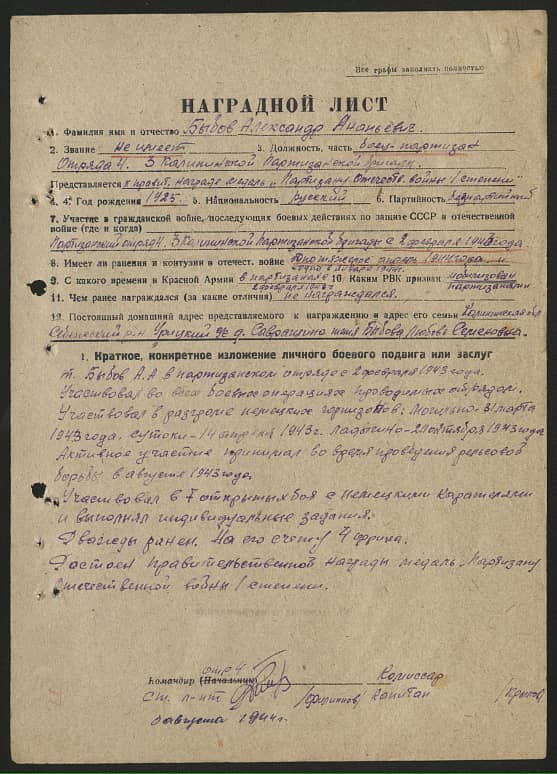 Все графы заполнять полностью
НАГРАДНОЙ ЛИСТ
1. Фамилия имя и отчество Быбов Александр Ананьевич.
2. Звание не имеет 3. Должность, часть боец-партизан
Отряда 4. 3 Калининской Партизанской Бригады.
Представляется к правит. награде медаль „Партизану Отечеств. войны I степени"
4. Год рождения 1925. 5. Национальность русский 6. Партийность беспартийный
7. Участие в гражданской войне, последующих боевых действиях по защите СССР и отечественной
войне (где и когда)
Партизанский отряд 4. 3 Калининской Партизанской бригады с 2 февраля 1943 года
8. Имеет ли ранения и контузии в отечеств. войне 1944 года.
9. С какого времени в Красной Армии в партизанах с 2 февраля 1943 г. 10. Каким РВК призван партизанами
11. Чем ранее награждался (за какие отличия) не награждался.
12. Постоянный домашний адрес представляемого к награждению и адрес его семьи Калининская обл.
Себежский р-н д. Быбова Любовь Семеновна.
1. Краткое, конкретное изложение личного боевого подвига или заслуг
т. Быбов А.А в партизанском отряде с 2 февраля 1943 года.
Участвовал во всех боевых операциях проводимых отрядом.
Участвовал в разгроме немецких гарнизонов: 31 марта
1943 года. Сутоки - 14 апреля 1943 г. - октября 1943 года
Активное участие принимал во время проведения рельсовой
борьбы в августе 1943 года.
Участвовал в 7 открытых боях с немецкими карателями
и выполнял индивидуальные задания.
Дважды ранен. На его счету 4 фрица.
Достоен правительственной награды медаль „Партизану
отечественной войны I степени.
отр 4
Командир (Начальник) Комиссар
ст. л-нт /Филиппов/ капитан
августа 1944 г.